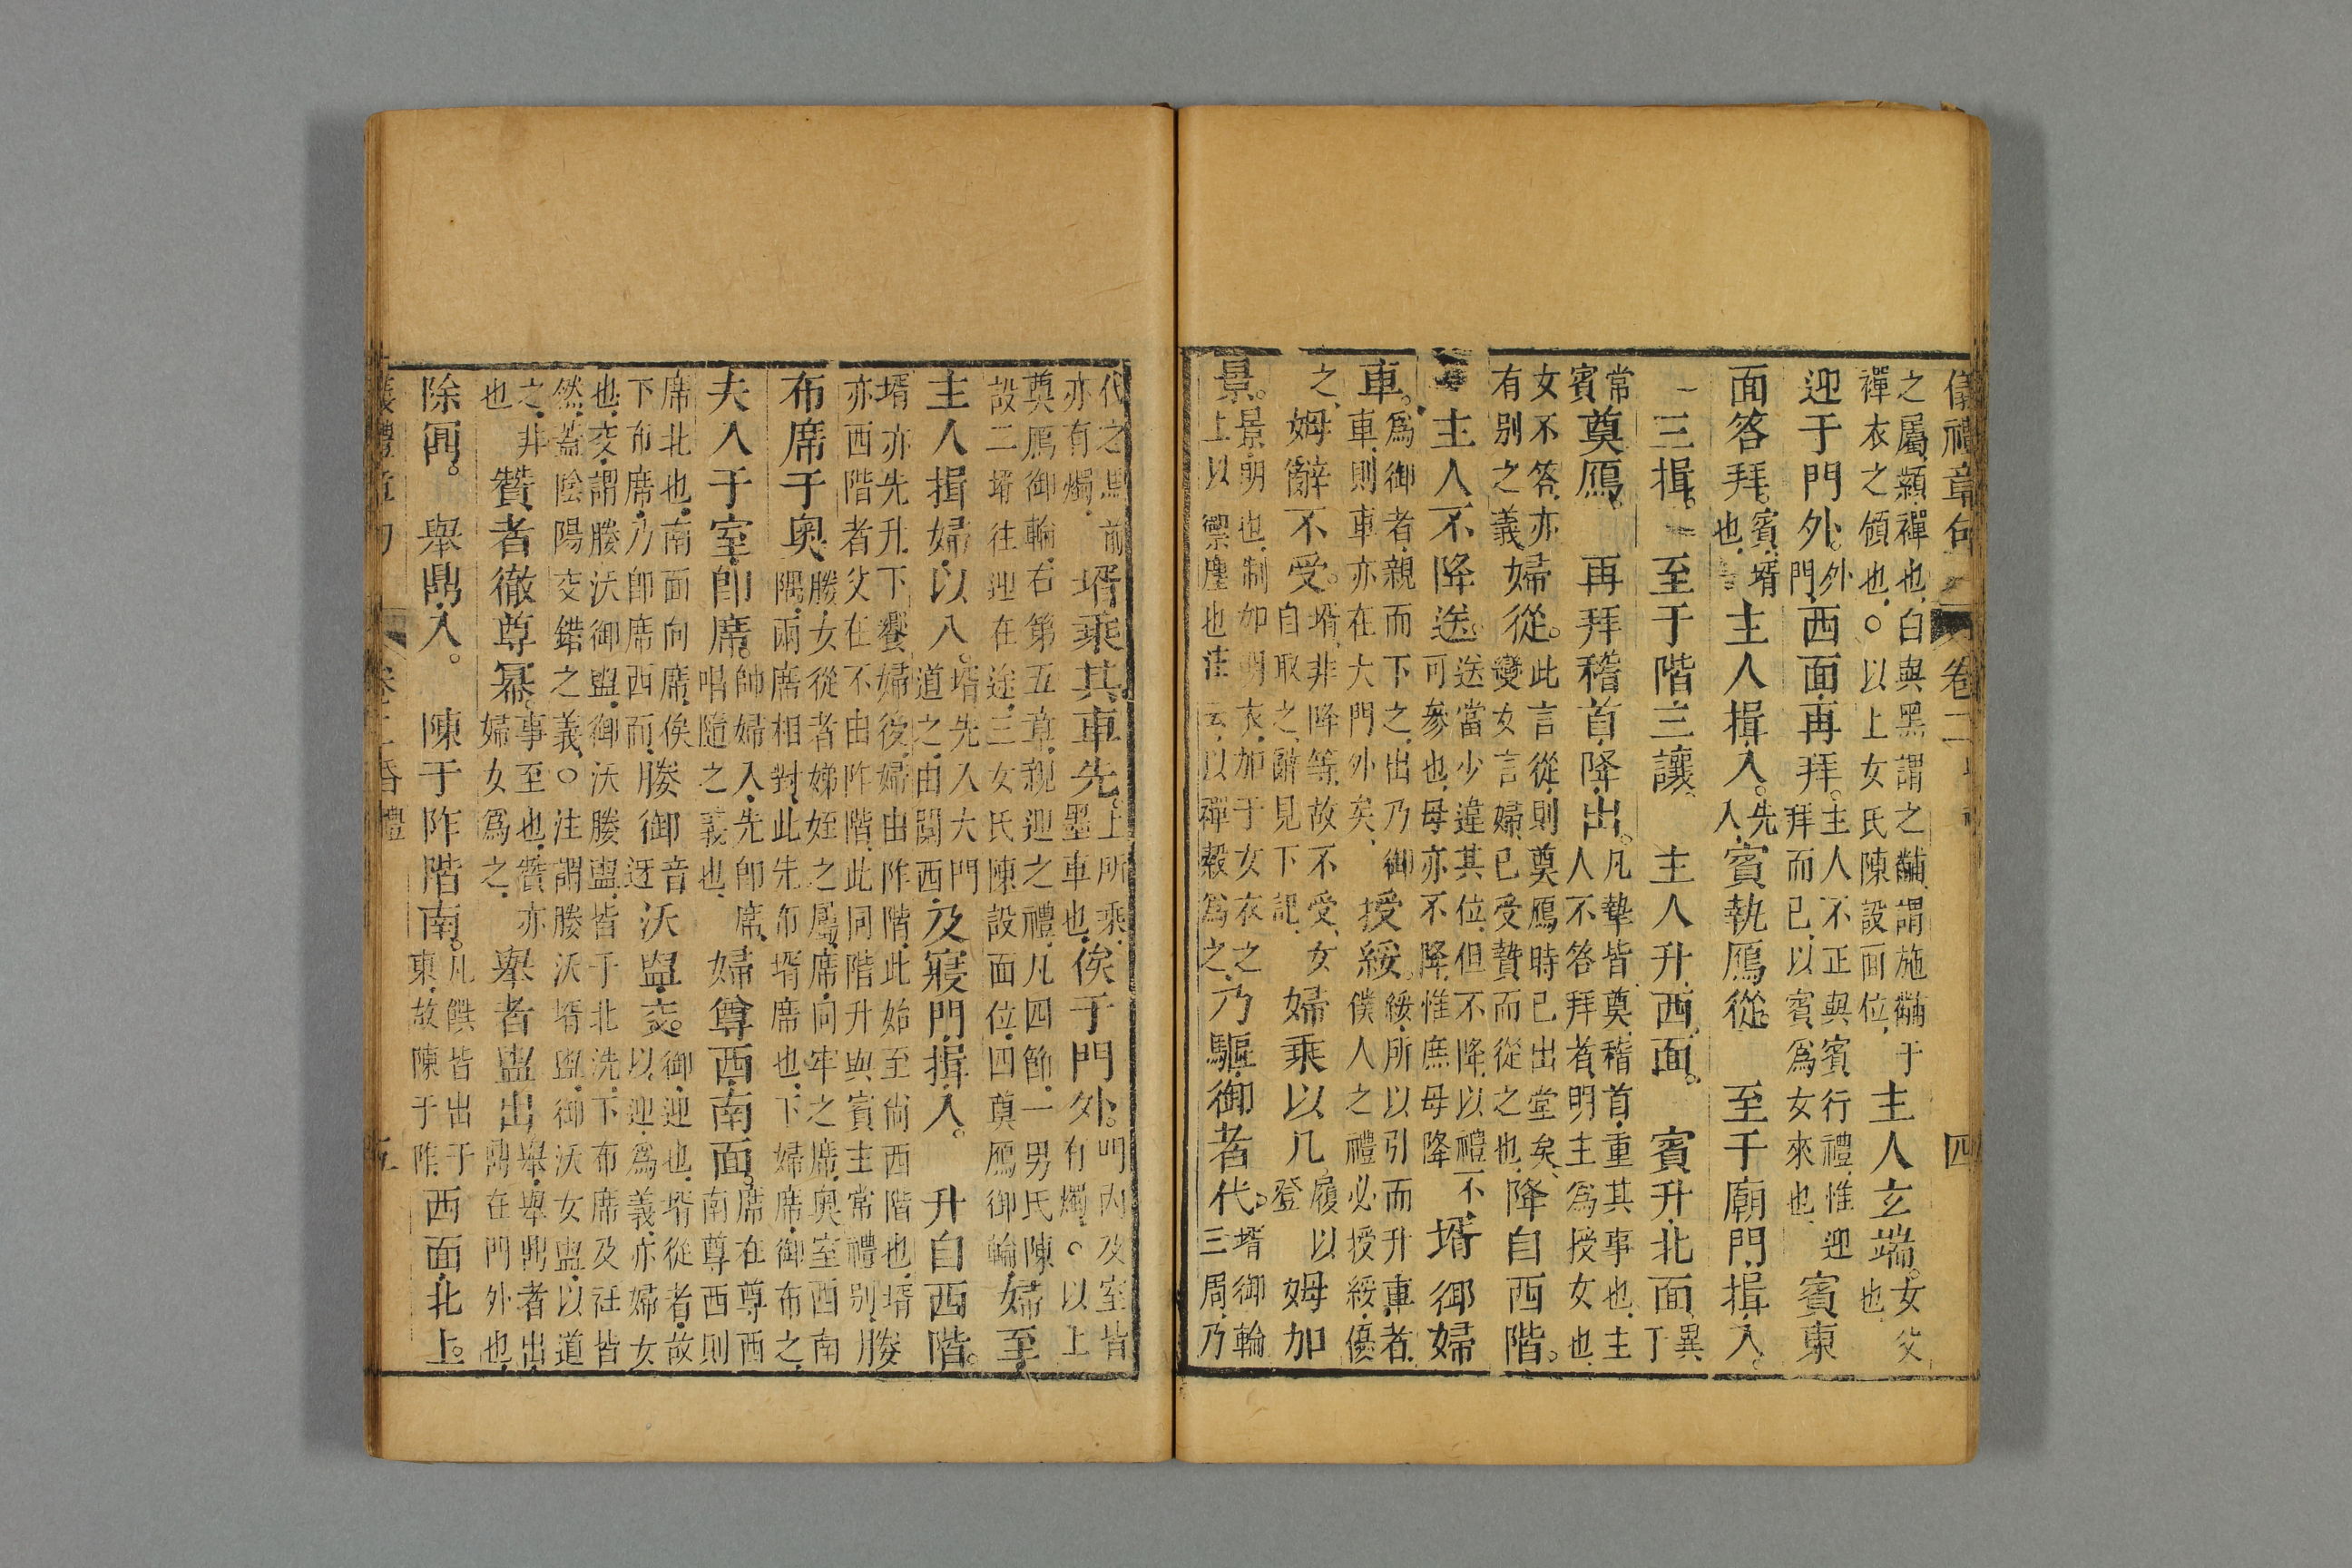 儀禮章句 卷二 四
之屬纇禪也白與黑謂之黼謂施黼于
禪衣之領也○以上女氏陳設面位
主人玄端女父
也
迎于門外外
門西面再拜主人不正與賓行禮惟迎
拜而已以賓爲女來也賓東
面答拜賓壻
也主人揖入先
入賓執鴈從 至于廟門揖入
三揖 至于階三讓 主人升西面 賓升北面異
丁
常
賓奠鴈 再拜稽首降出凡摯皆奠稽首重其事也主
人不答拜者明主爲授女也
女不答亦
有别之義婦從此言從則奠鴈時已出堂矣
變女言婦已受贄而從之也降自西階
主人不降送送當少違其位但不降以禮不
可參也母亦不降惟庶母降壻御婦
車爲御者親而下之出乃御
車則車亦在大門外矣授綏綏所以引而升車者
僕人之禮必授綏優
之
姆辭不受壻非降等故不受女
自取之辭見下記婦乘以几履以
登姆加
景景明也制如明衣加于女衣之
上以禦塵也注云以禪縠爲之乃驅御者代壻御輪
三周乃
代之 前
亦有燭壻乘其車先上所乘
墨車也俟于門外門内及室皆
有燭○以上
奠鴈御輪右第五章親迎之禮凡四節一男氏陳
設二壻往迎在途三女氏陳設面位四奠鴈御輪婦至
主人揖婦以入壻先入大門
道之由闑西及寢門揖入 升自西階
壻亦先升下饗婦後婦由阼階此始至尚西階也壻
亦西階者父在不由阼階此同階升與賓主常禮别媵
布席于奧媵女從者娣姪之屬席向牢之席奧室西南
隅兩席相對此先布壻席也下婦席御布之
夫入于室即席帥婦入先即席
唱隨之義也婦尊西南面席在尊西
南尊西則
席北也南面向席俟
下布席乃即席西面媵御音
迓沃盥交御迎也壻從者故
以迎爲義亦婦女
也交謂媵沃御盥御沃媵盥皆于北洗下布席及祍皆
然蓋陰陽交錯之義○注謂媵沃壻盥御沃女盥以道
之非
也贊者徹尊冪事至也贊亦
婦女爲之舉者盥出舉舉鼎者出
鼎在門外也
除冪 舉鼎入 陳于阼階南凡饌皆出于
東故陳于阼西面北上
儀禮章句 卷二 昏禮 五